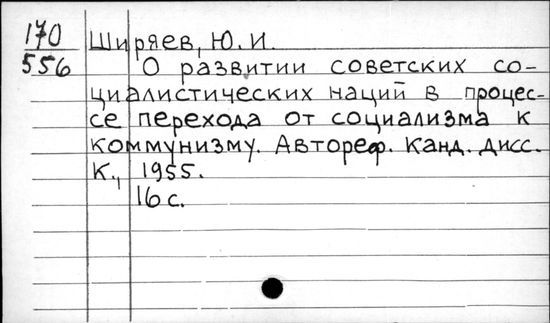 170 Ширяев, Ю. И.
556 О развитии советских со-
циалистических наций в процес-
се перехода от социализма к
коммунизму. Автореф. Канд. дисс.
К., 1955.
16 с.